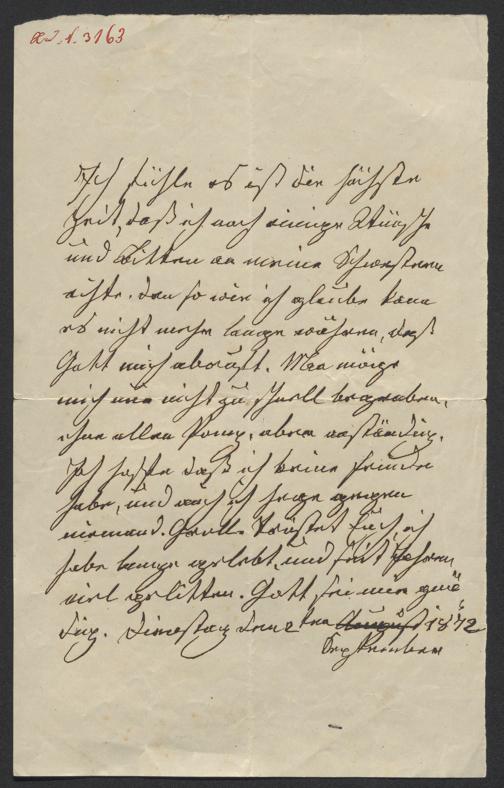 N. 3163
Ich fühle es ist die höchste
Zeit, daß ich noch einige Wünsche
und Bitten an meine Schwestern
richte. den so wie ich glaube kann
es nicht mehr lange währen, daß
Gott mich abruft. Man möge
mich nur nicht zu schnell begraben,
ohne allen Pomp, aber anständig.
Ich hoffe daß ich keine Feinde
habe, und auch ich hege gegen
niemand Groll. Tröstet Euch ich
habe lange gelebt, und seit Jahren
viel gelitten. Gott sei mir gnä
dig. Dienstag den 2ten August 1872
September